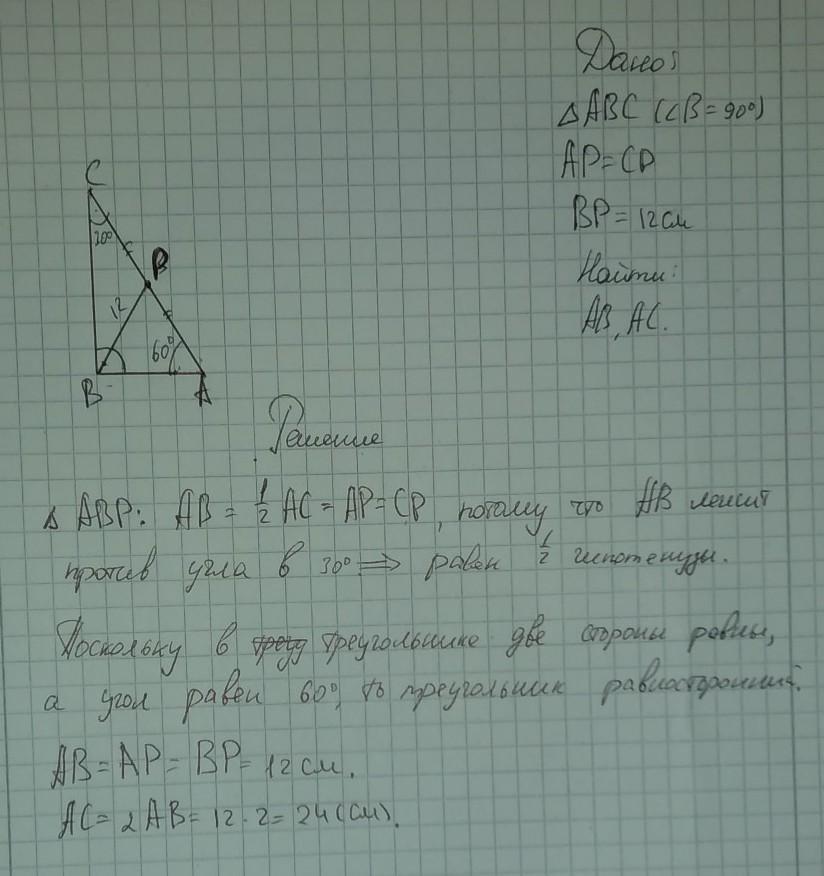 Дано:
△ABC (∠B = 90°)
AP = CP
BP = 12 см
Найти:
AB, AC.
C
30°
B
12
60°
B
A
Решение
△ ABP: AB = 1/2 AC = AP = CP, потому что AB лежит
против угла в 30° ⟹ равен 1/2 гипотенузы.
Поскольку в треугольнике две стороны равны,
а угол равен 60°, то треугольник равносторонний.
AB = AP = BP = 12 см.
AC = 2AB = 12 · 2 = 24 (см).